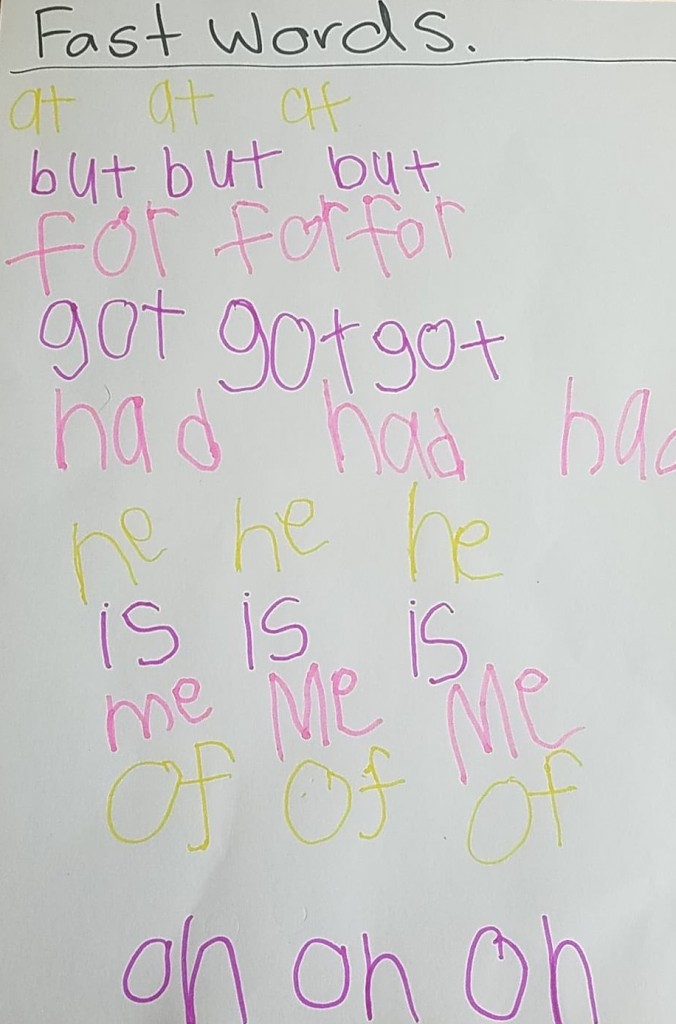 Fast words.
at at at
but but but
for for for
got got got
had had had
he he he
is is is
me Me Me
of of of
on on on